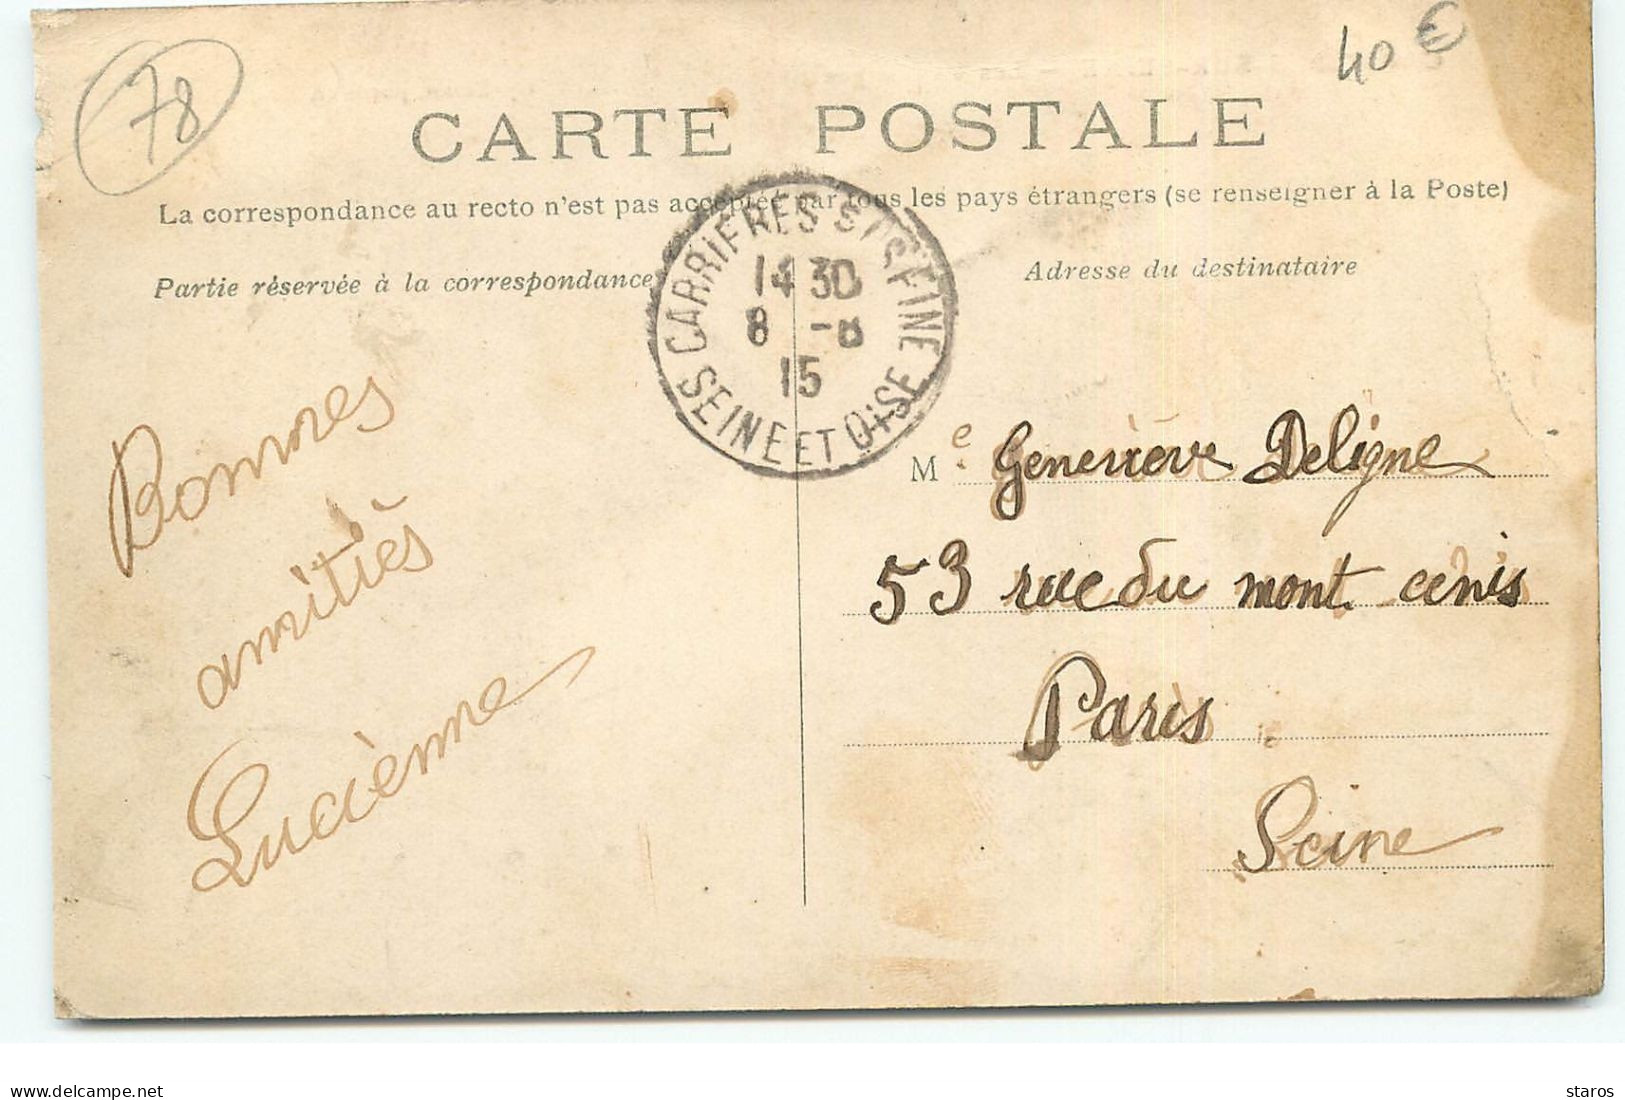 78
40 €
CARTE POSTALE
La correspondance au recto n'est pas acceptée par tous les pays étrangers (se renseigner à la Poste)
Partie réservée à la correspondance
Adresse du destinataire
CARRIERES S/ SEINE
14 30
8 -8
15
SEINE ET OISE
Bonnes
amitiés
Lucienne
Me Genevieve Deligne
53 rue du mont cenis
Paris
Seine
www.delcampe.net
staros